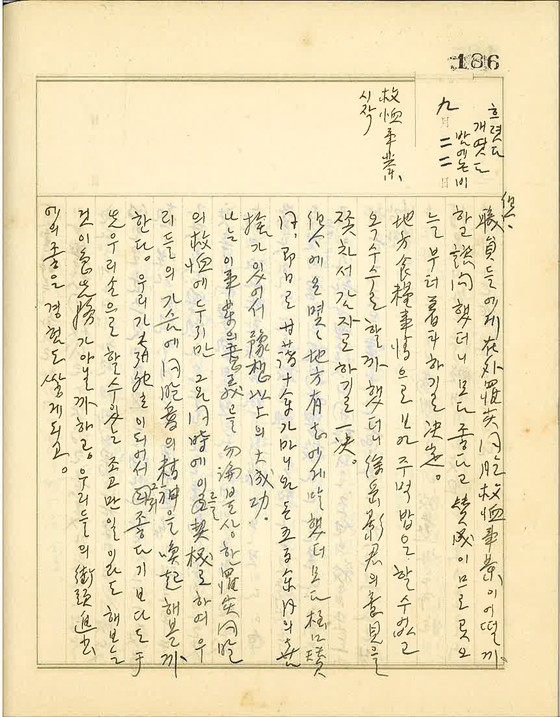 186
흐렷다
개엿다
밤에는비
九月二二日
救恤事業
시작
但只
職員들에게 在外罹災同胞救恤事業이어떨까
하고 諮問했더니 모다좋다고 贊成이므로 곳오
늘부터 着手하기로決定。
地方食糧事情으로보아 주먹밥은 할수없고
옥수수로 할까했더니 徐 君의意見을
쫓차서 감자로하기로一決。
에오면 地方有志에게말했더니 모다
同、即日로 甘藷十余가마니와 돈五百余円의
捨가있어서 豫想以上의大成功。
나는 이事業의意義를 勿論불상한罹災同胞
의救恤에두지만 그와同時에 이것을契機로하여 우
리들의가슴에 同胞愛의精神을 喚起해볼까
한다。우리가 이되어서 좋다기보다도于
先우리손으로 할수있는 조고만일이라도 해보는
것이急先務가아닐까하고。우리들의 街頭進出
에의좋은 경험도 쌓게되고。